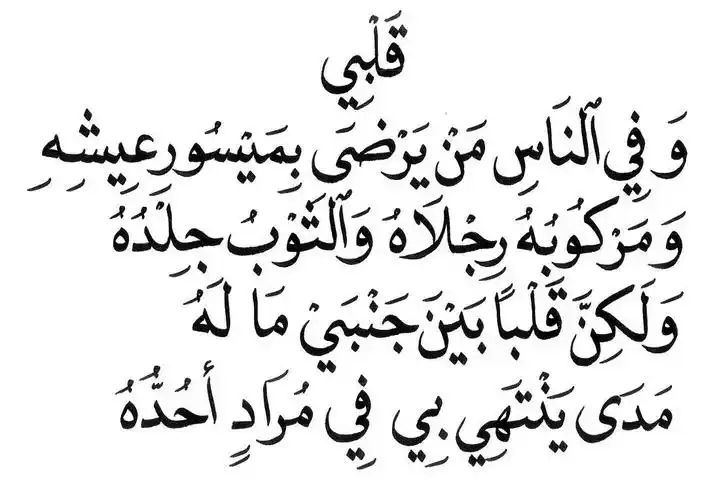 قَلْبِي
وَ فِي ٱلنَاسِ مَنْ يَرْضَى بِمَيْسُورِ عِيشِهِ
وَ مَرْكُوبُهُ رِجْلَاهُ وَٱلثَوْبُ جِلْدُهُ
وَلَكِنَّ قَلْبًا بَيْنَ جَنْبَيْ مَا لَهُ
مَدَى يَنْتَهِي بِي فِي مُرَادٍ أَحُدُّهُ